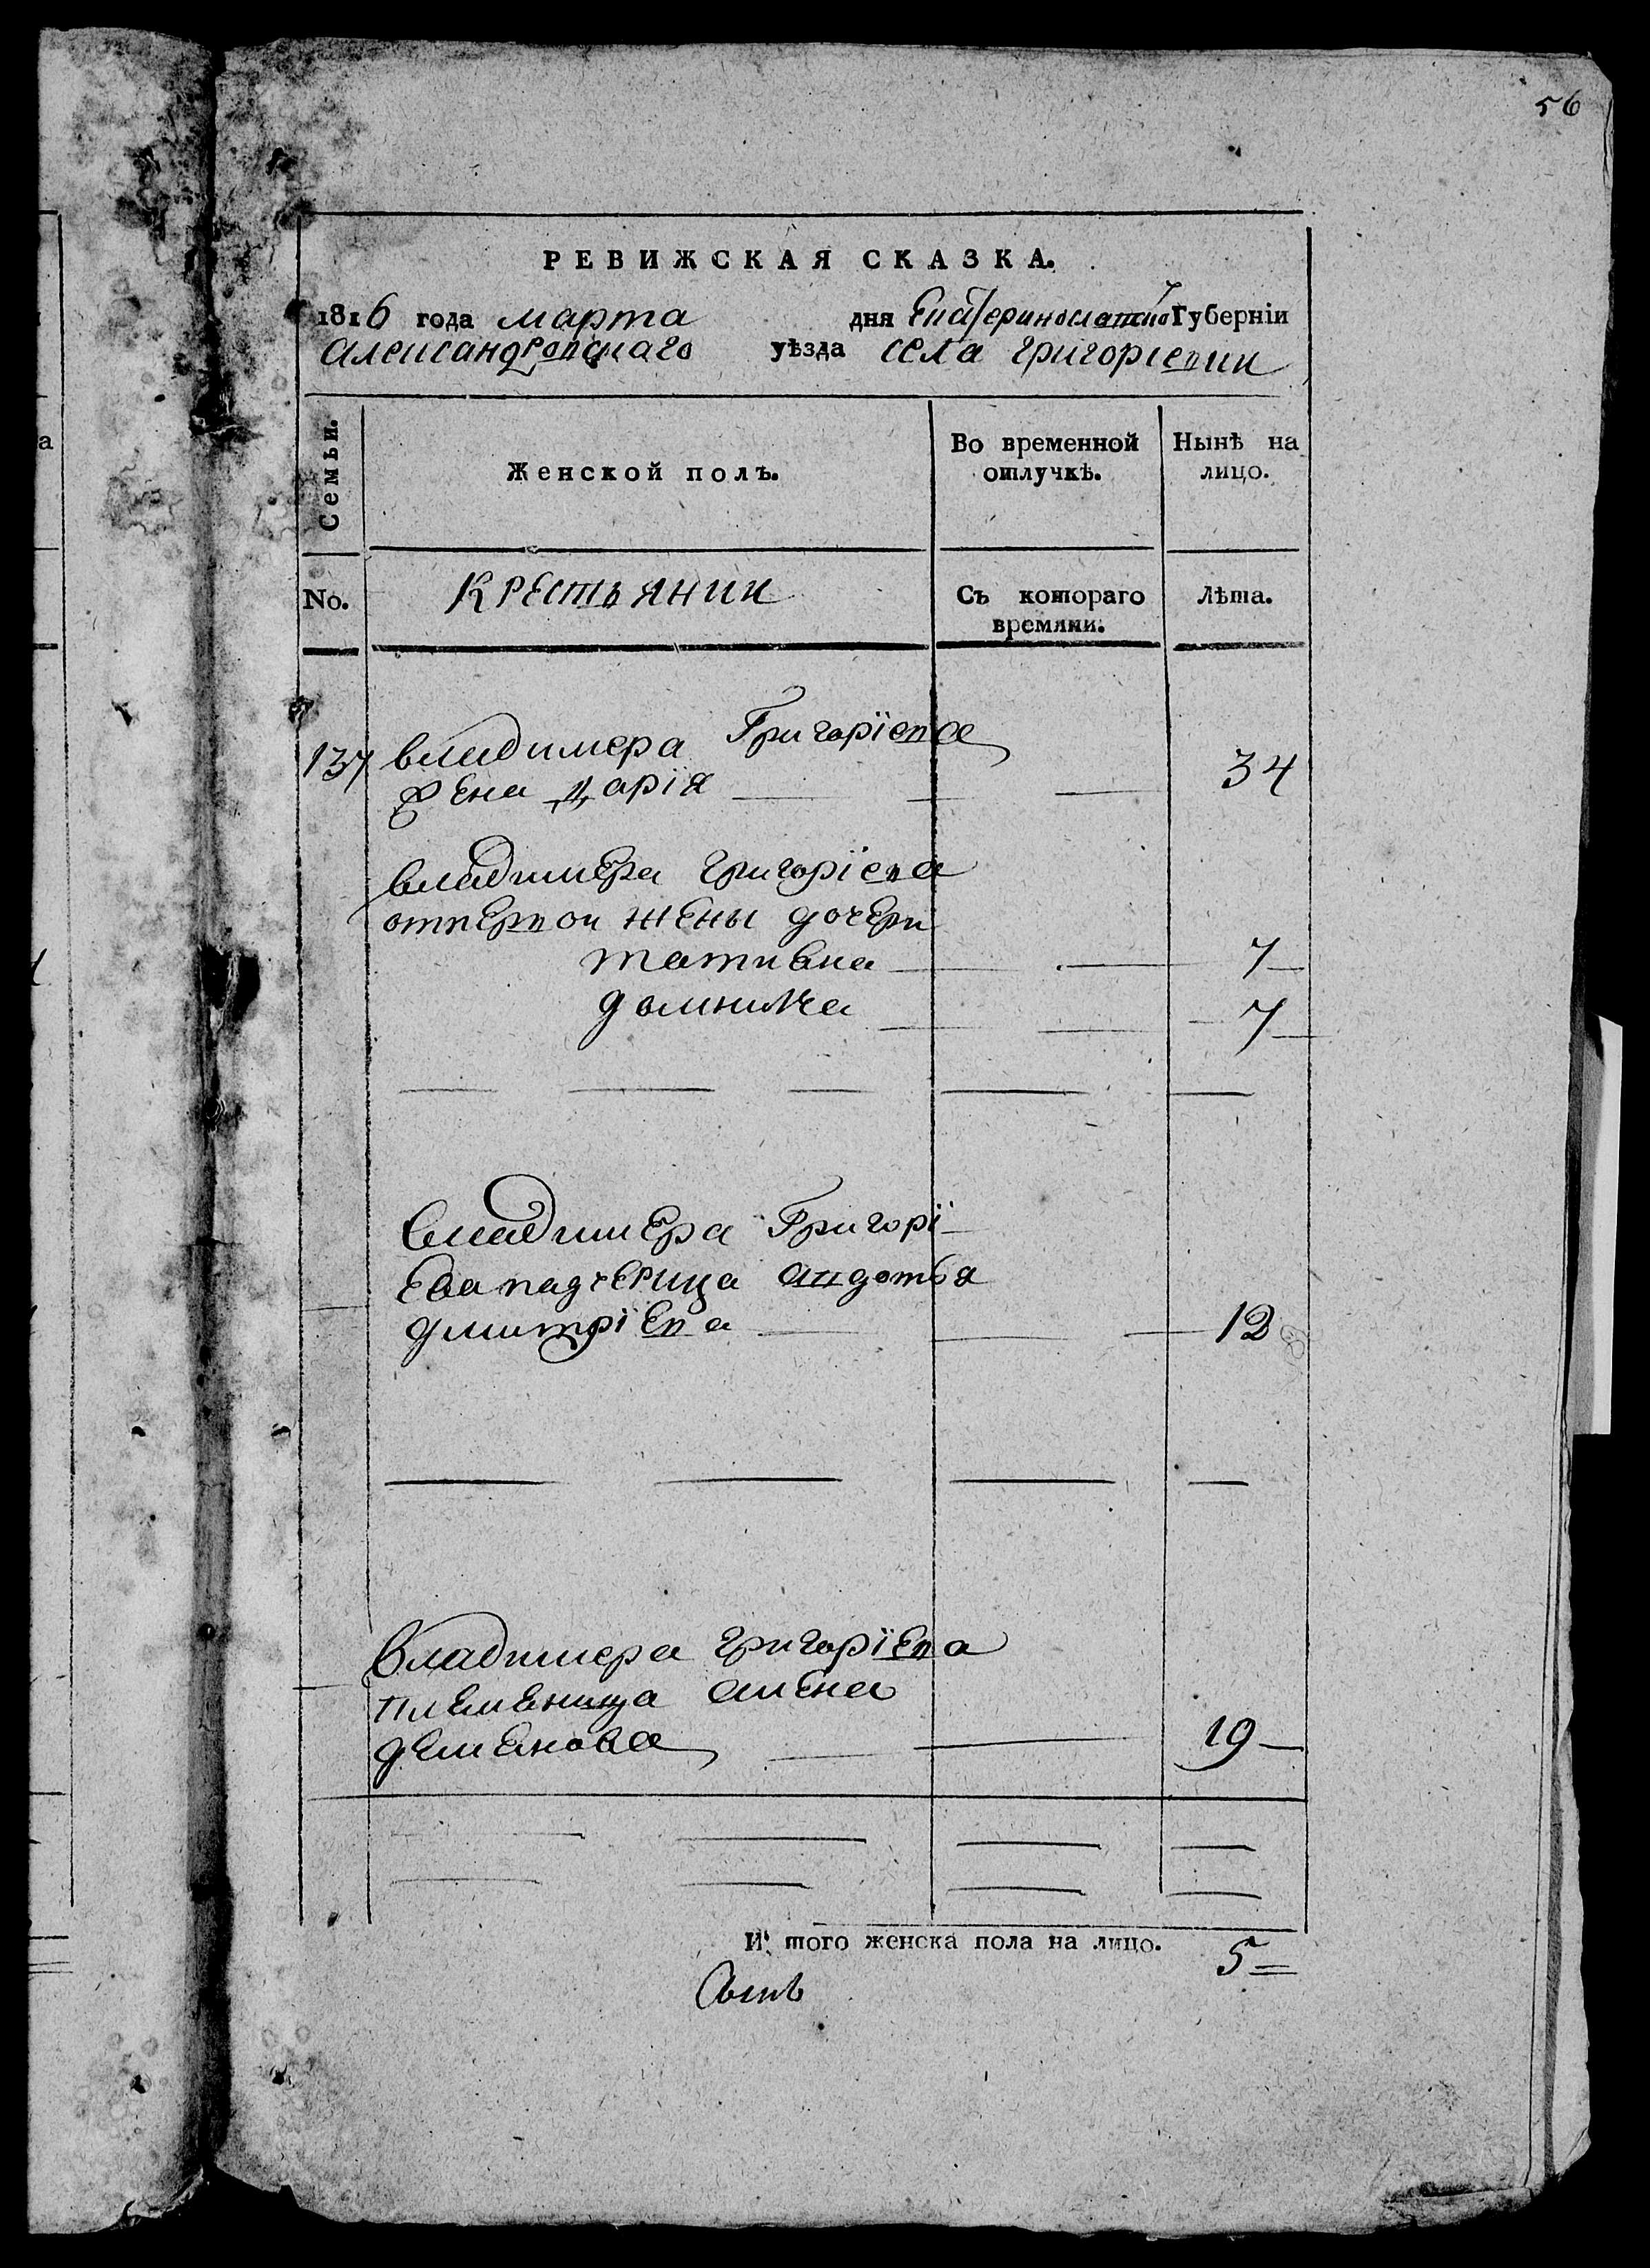 56
РЕВИЖСКАЯ СКАЗКА.
1816 года марта дня Екатеринославской Губерніи
Александровскаго уѣзда села Григорієвки
Семьи. Женской полъ. Во временной отлучкѣ. Нынѣ на лицо.
No. Крестьянки Съ котораго времяни. Лѣта.
137 владимера Григорїева
жена дарїя 34
владимера григорїева
отпервои жены дочери
татиана 7
домникеа 7
владимера Григорї
ева падчерица авдотья
дмитрїева 12
владимера григорїева
племеница алена
деменова 19
И того женска пола на лицо. 5